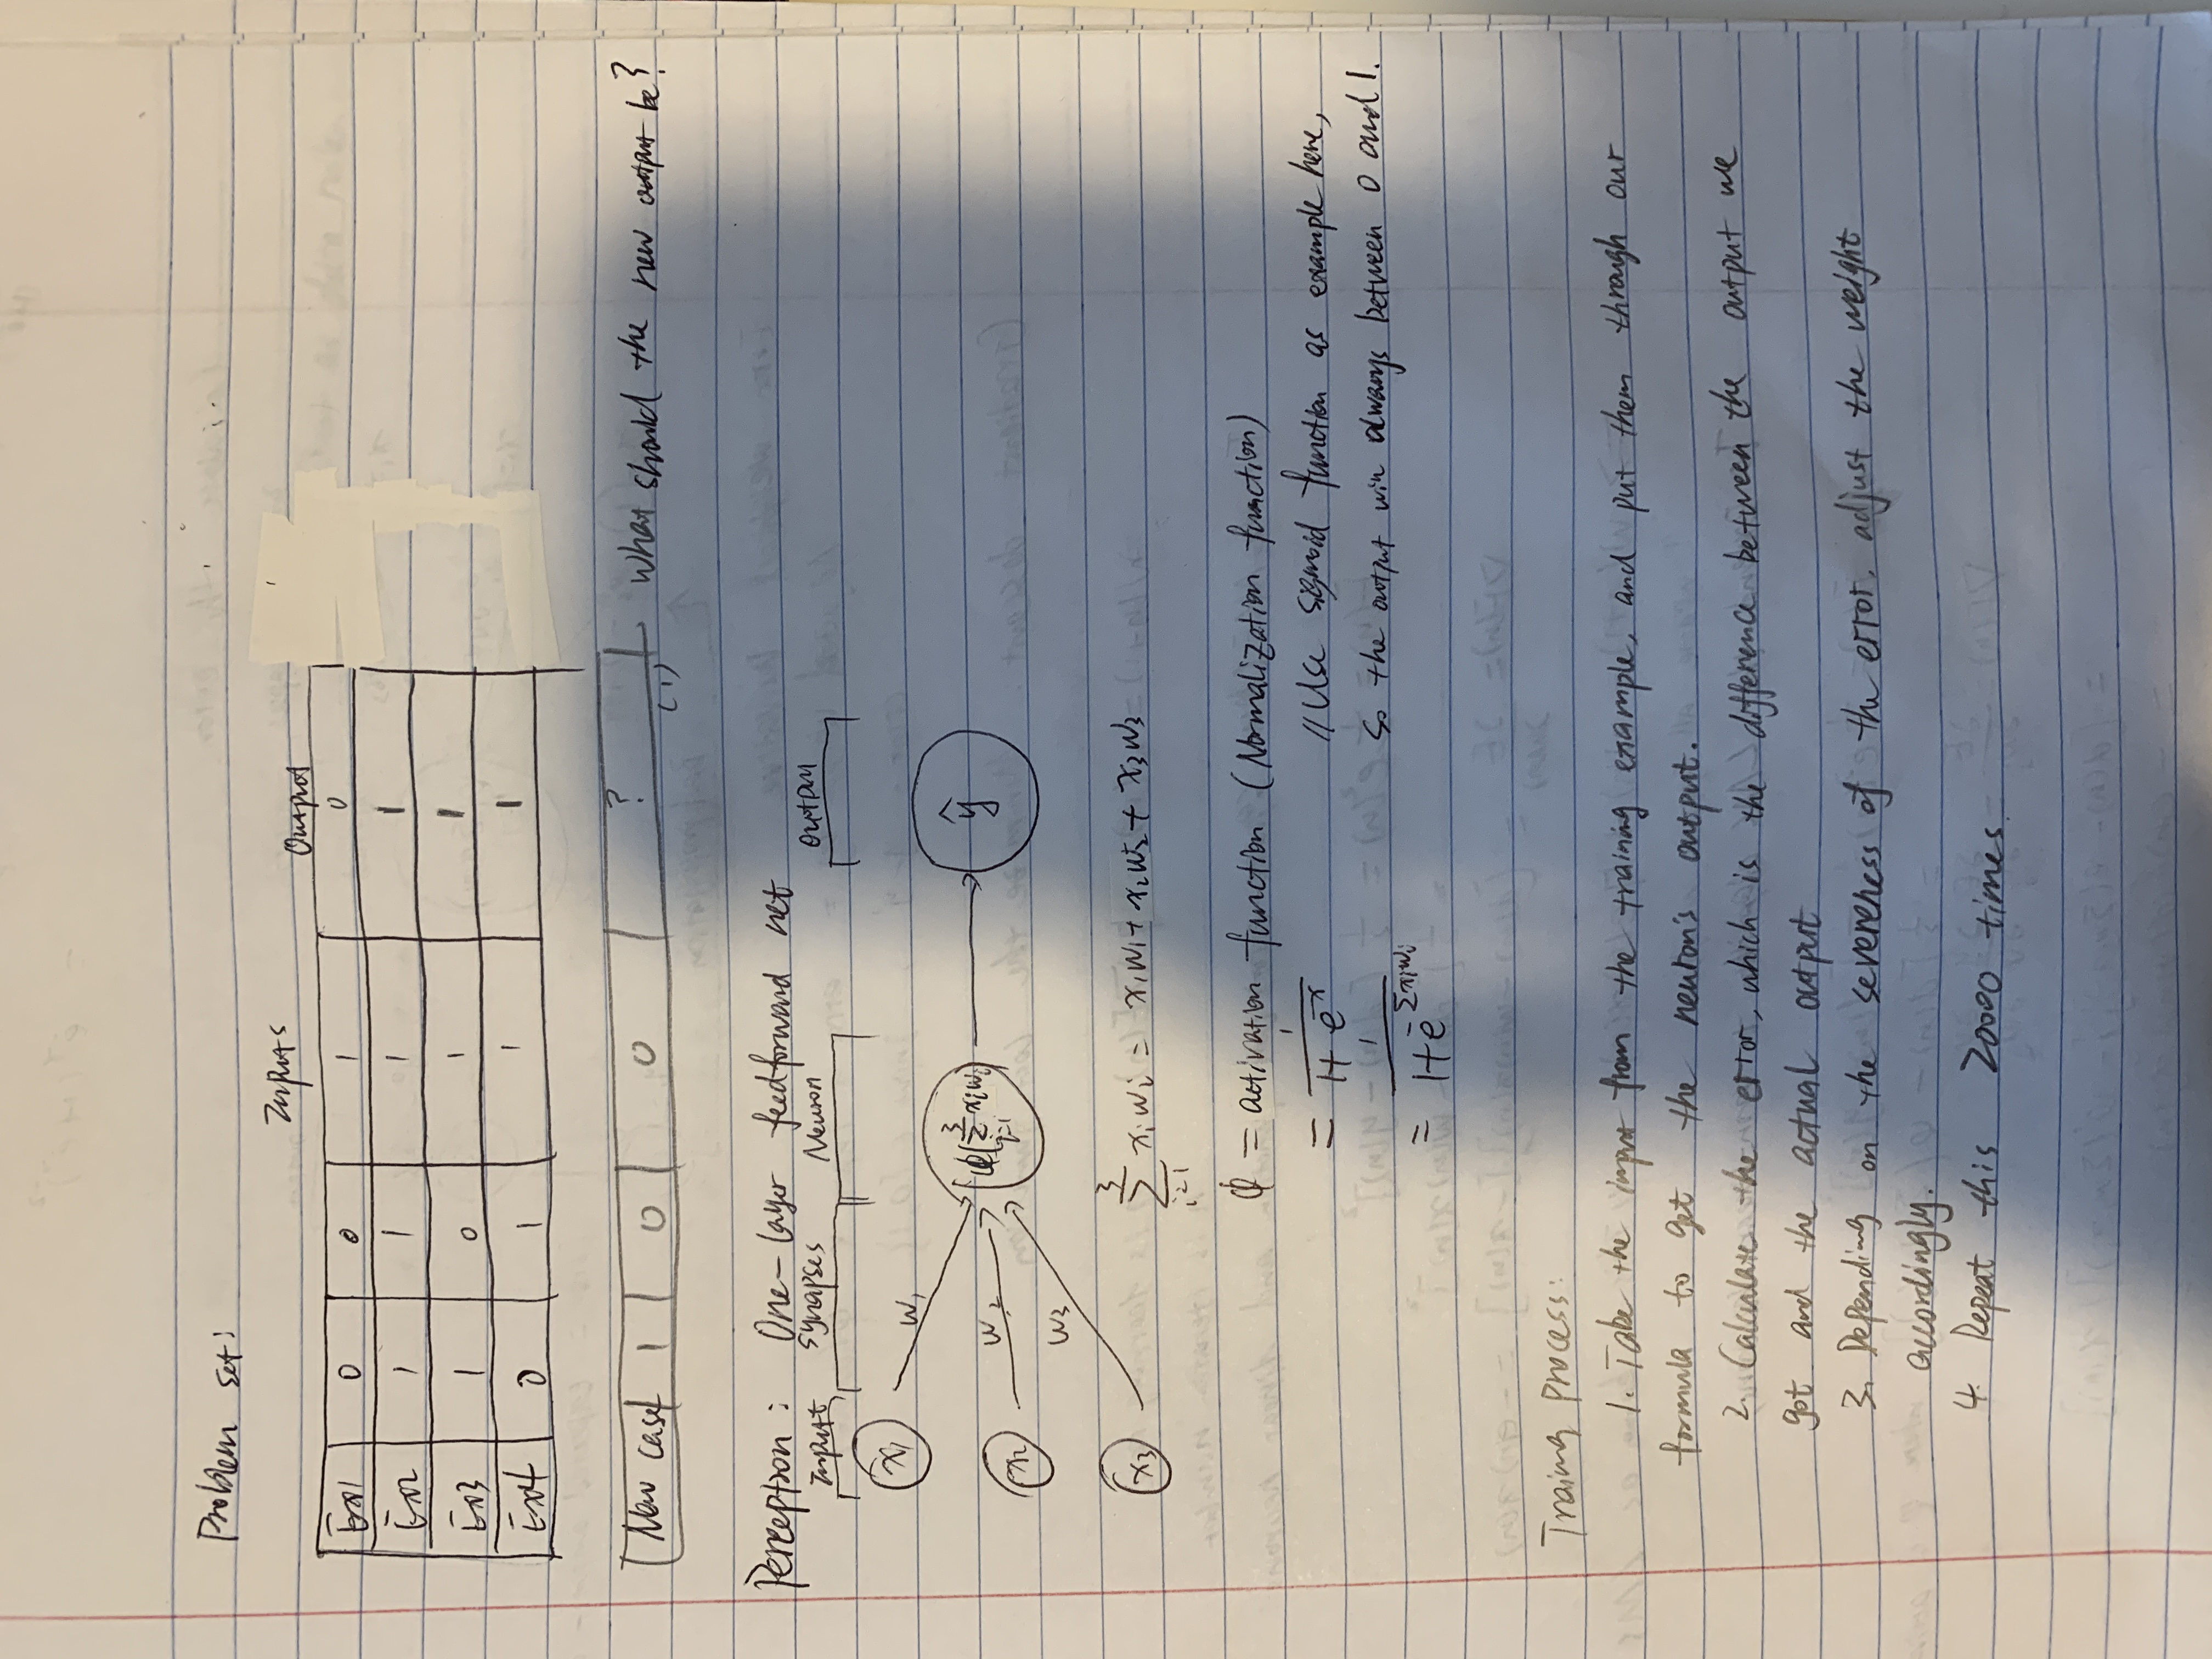 Problem set:
Inputs
Output
Ex1 0 0 1 0
Ex2 1 1 1 1
Ex3 1 0 1 1
Ex4 0 1 1 1
New case 1 0 0 ? (1) What should the new output be?
Perception: One-layer feedforward net
Input Synapses Neuron Output
x₁ w₁
φ(∑³ᵢ₌₁ xᵢwᵢ) ŷ
x₂ w₂
w₃
x₃
∑³ᵢ₌₁ xᵢwᵢ = x₁w₁ + x₂w₂ + x₃w₃
φ = activation function (Normalization function)
= 1/(1+e^-x) // Use sigmoid function as example here,
so the output win always between 0 and 1.
= 1/(1+e^-∑xᵢwᵢ)
Training Process:
1. Take the input from the training example, and put them through our
formula to get the neuron's output.
2. Calculate the error, which is the difference between the output we
got and the actual output
3. Depending on the severeness of the error, adjust the weight
accordingly.
4. Repeat this 20000 times.